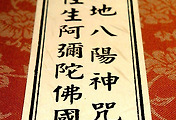 地八陽神咒
往生阿彌陀佛國